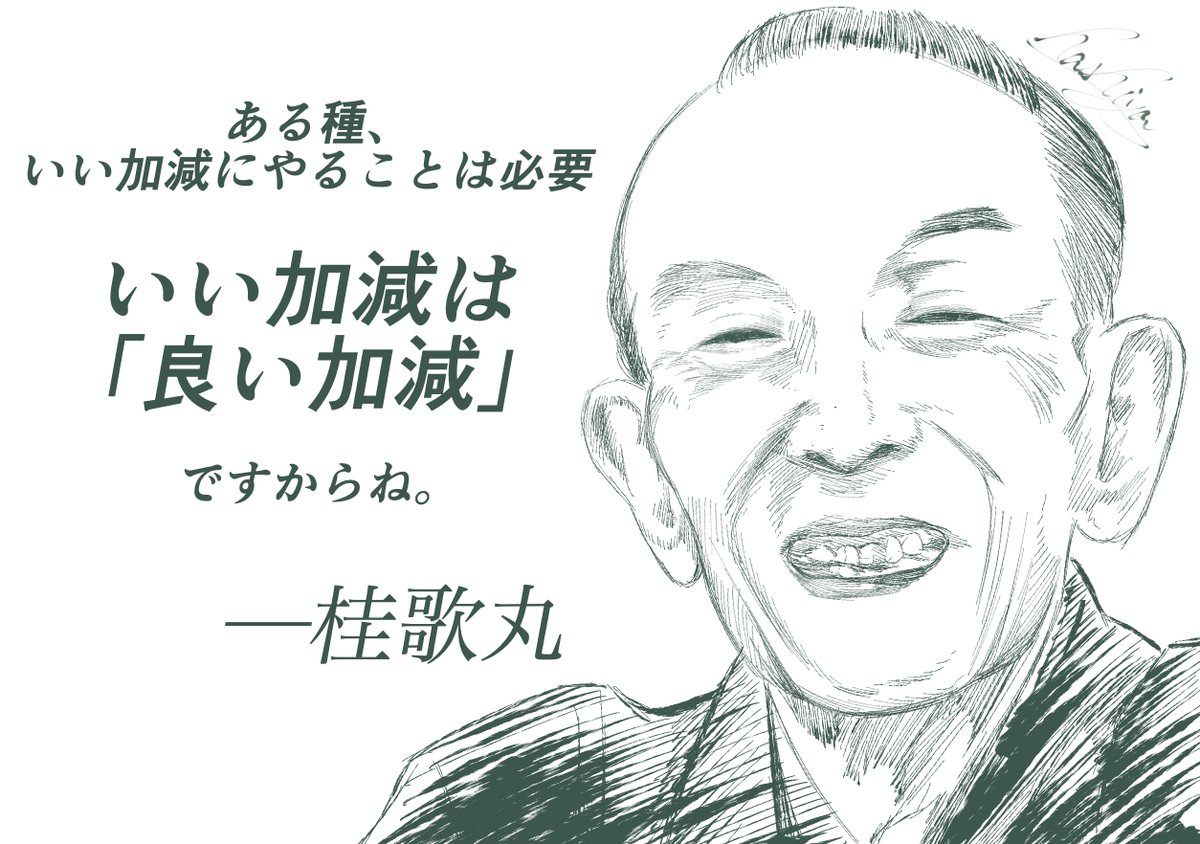 ある種、
いい加減にやることは必要
いい加減は
「良い加減」
ですからね。
―桂歌丸